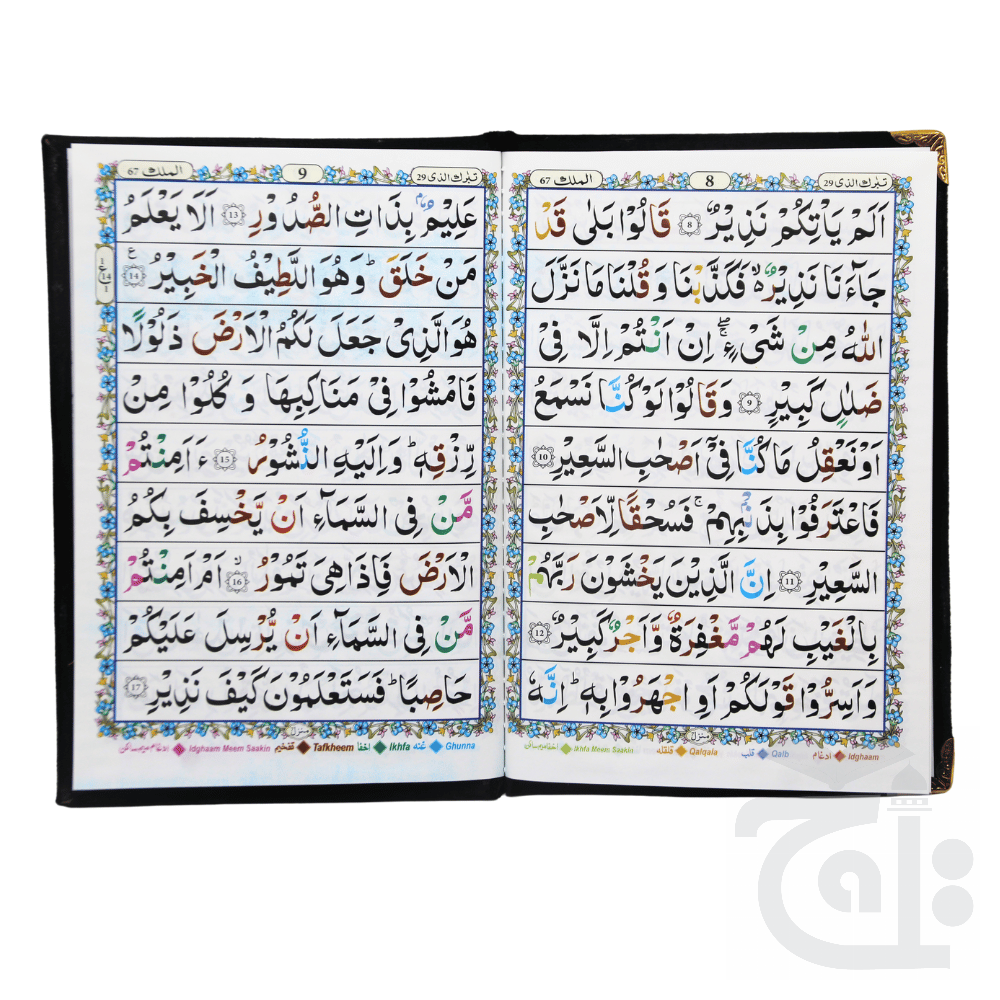 تبٰرك الذى 29
8
الملك 67
اَلَمْ يَاْتِكُمْ نَذِيْرٌ ۞8 قَالُوْا بَلٰى قَدْ
جَآءَنَا نَذِيْرٌ ۙ فَكَذَّبْنَا وَ قُلْنَا مَا نَزَّلَ
اللّٰهُ مِنْ شَىْءٍ ۖۚ اِنْ اَنْتُمْ اِلَّا فِىْ
ضَلٰلٍ كَبِيْرٍ ۞9 وَقَالُوْا لَوْ كُنَّا نَسْمَعُ
اَوْ نَعْقِلُ مَا كُنَّا فِىْۤ اَصْحٰبِ السَّعِيْرِ ۞10
فَاعْتَرَفُوْا بِذَنْۢبِهِمْ ۚ فَسُحْقًا لِّاَصْحٰبِ
السَّعِيْرِ ۞11 اِنَّ الَّذِيْنَ يَخْشَوْنَ رَبَّهُمْ
بِالْغَيْبِ لَهُمْ مَّغْفِرَةٌ وَّاَجْرٌ كَبِيْرٌ ۞12
وَاَسِرُّوْا قَوْلَكُمْ اَوِ اجْهَرُوْا بِهٖ ؕ اِنَّهٗ
منزل
Idghaam ادغام Qalb قلب Qalqala قلقله Ikhfa Meem Saakin اخفا ميم ساكن
تبٰرك الذى 29
9
الملك 67
عَلِيْمٌۢ بِذَاتِ الصُّدُوْرِ ۞13 اَلَا يَعْلَمُ
مَنْ خَلَقَ ؕ وَهُوَ اللَّطِيْفُ الْخَبِيْرُ ۞14 ع
1 ع 14 1
هُوَ الَّذِىْ جَعَلَ لَكُمُ الْاَرْضَ ذَلُوْلًا
فَامْشُوْا فِىْ مَنَاكِبِهَا وَ كُلُوْا مِنْ
رِّزْقِهٖ ؕ وَاِلَيْهِ النُّشُوْرُ ۞15 ءَاَمِنْتُمْ
مَّنْ فِى السَّمَآءِ اَنْ يَّخْسِفَ بِكُمُ
الْاَرْضَ فَاِذَا هِىَ تَمُوْرُ ۙ ۞16 اَمْ اَمِنْتُمْ
مَّنْ فِى السَّمَآءِ اَنْ يُّرْسِلَ عَلَيْكُمْ
حَاصِبًا ؕ فَسَتَعْلَمُوْنَ كَيْفَ نَذِيْرِ ۞17
منزل
Ghunna غنه Ikhfa اخفا Tafkheem تفخيم Idghaam Meem Saakin ادغام ميم ساكن